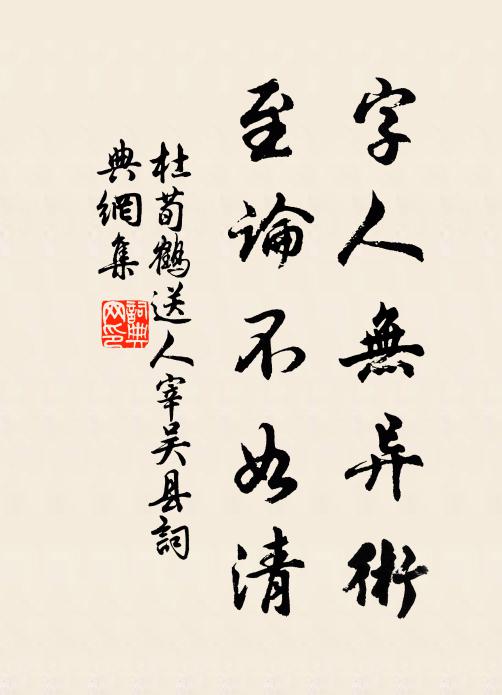 字人無异術
至論不如清
杜荀鶴送人宰吴县詞
典網集
詞典
网印